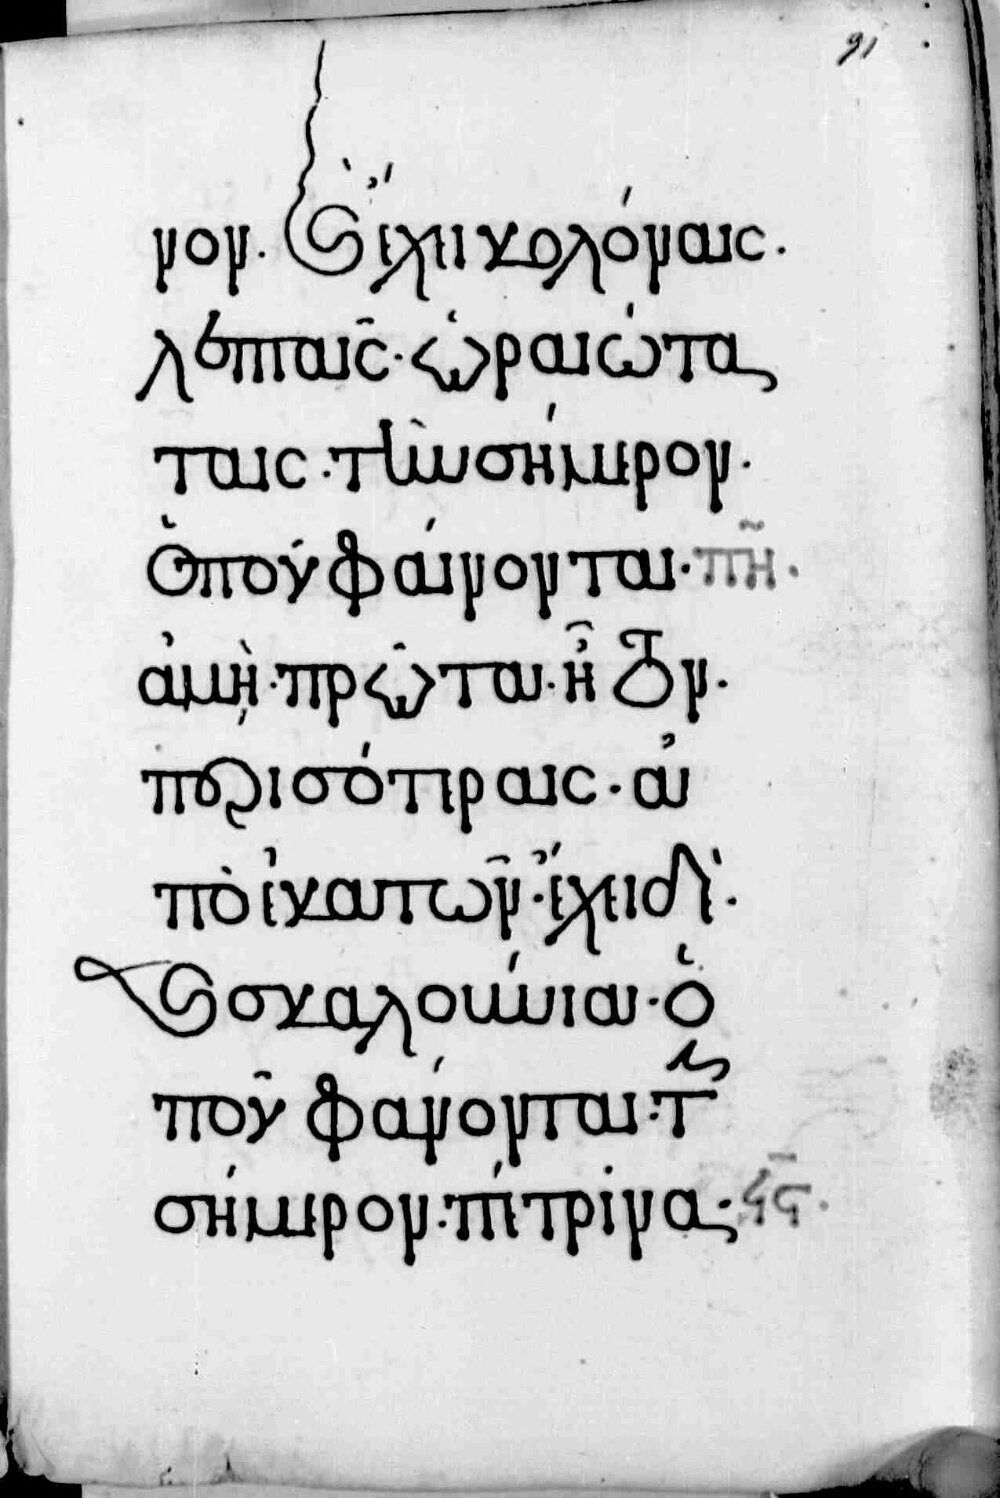 91
νον. Ἔχει κολόναις.
λοιπαῖς. ὡραιώτα
ταις. τὴν σήμερον.
ὁποὺ φαίνονται. πῆ.
ἀμὴ. πρῶται. ἦ τον.
περισότεραις. ἀ
πὸ ἑκατῶν. ἔχει δὲ.
Ε σκαλοκώνιαι. ὁ
ποῦ φαίνονται. τὴν
σήμερον. πέτρινα.